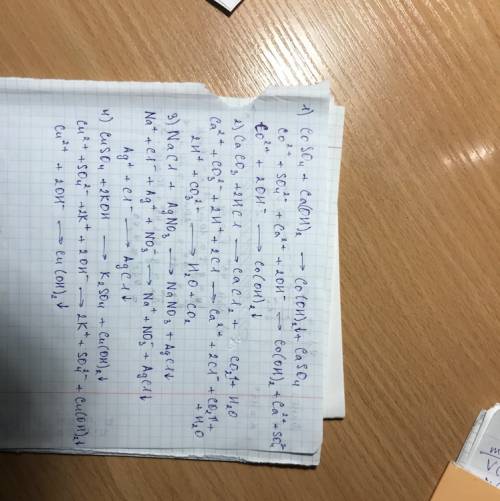 1) CoSO₄ + Ca(OH)₂ ⟶ Co(OH)₂↓ + CaSO₄
Co²⁺ + SO₄²⁻ + Ca²⁺ + 2OH⁻ ⟶ Co(OH)₂ + Ca²⁺ + SO₄²⁻
Co²⁺ + 2OH⁻ ⟶ Co(OH)₂↓
2) CaCO₃ + 2HCl ⟶ CaCl₂ + CO₂↑ + H₂O
Ca²⁺ + CO₃²⁻ + 2H⁺ + 2Cl⁻ ⟶ Ca²⁺ + 2Cl⁻ + CO₂↑ +
+ H₂O
2H⁺ + CO₃²⁻ ⟶ H₂O + CO₂
3) NaCl + AgNO₃ ⟶ NaNO₃ + AgCl↓
Na⁺ + Cl⁻ + Ag⁺ + NO₃⁻ ⟶ Na⁺ + NO₃⁻ + AgCl↓
Ag⁺ + Cl⁻ ⟶ AgCl↓
4) CuSO₄ + 2KOH ⟶ K₂SO₄ + Cu(OH)₂↓
Cu²⁺ + SO₄²⁻ + 2K⁺ + 2OH⁻ ⟶ 2K⁺ + SO₄²⁻ + Cu(OH)₂↓
Cu²⁺ + 2OH⁻ ⟶ Cu(OH)₂↓